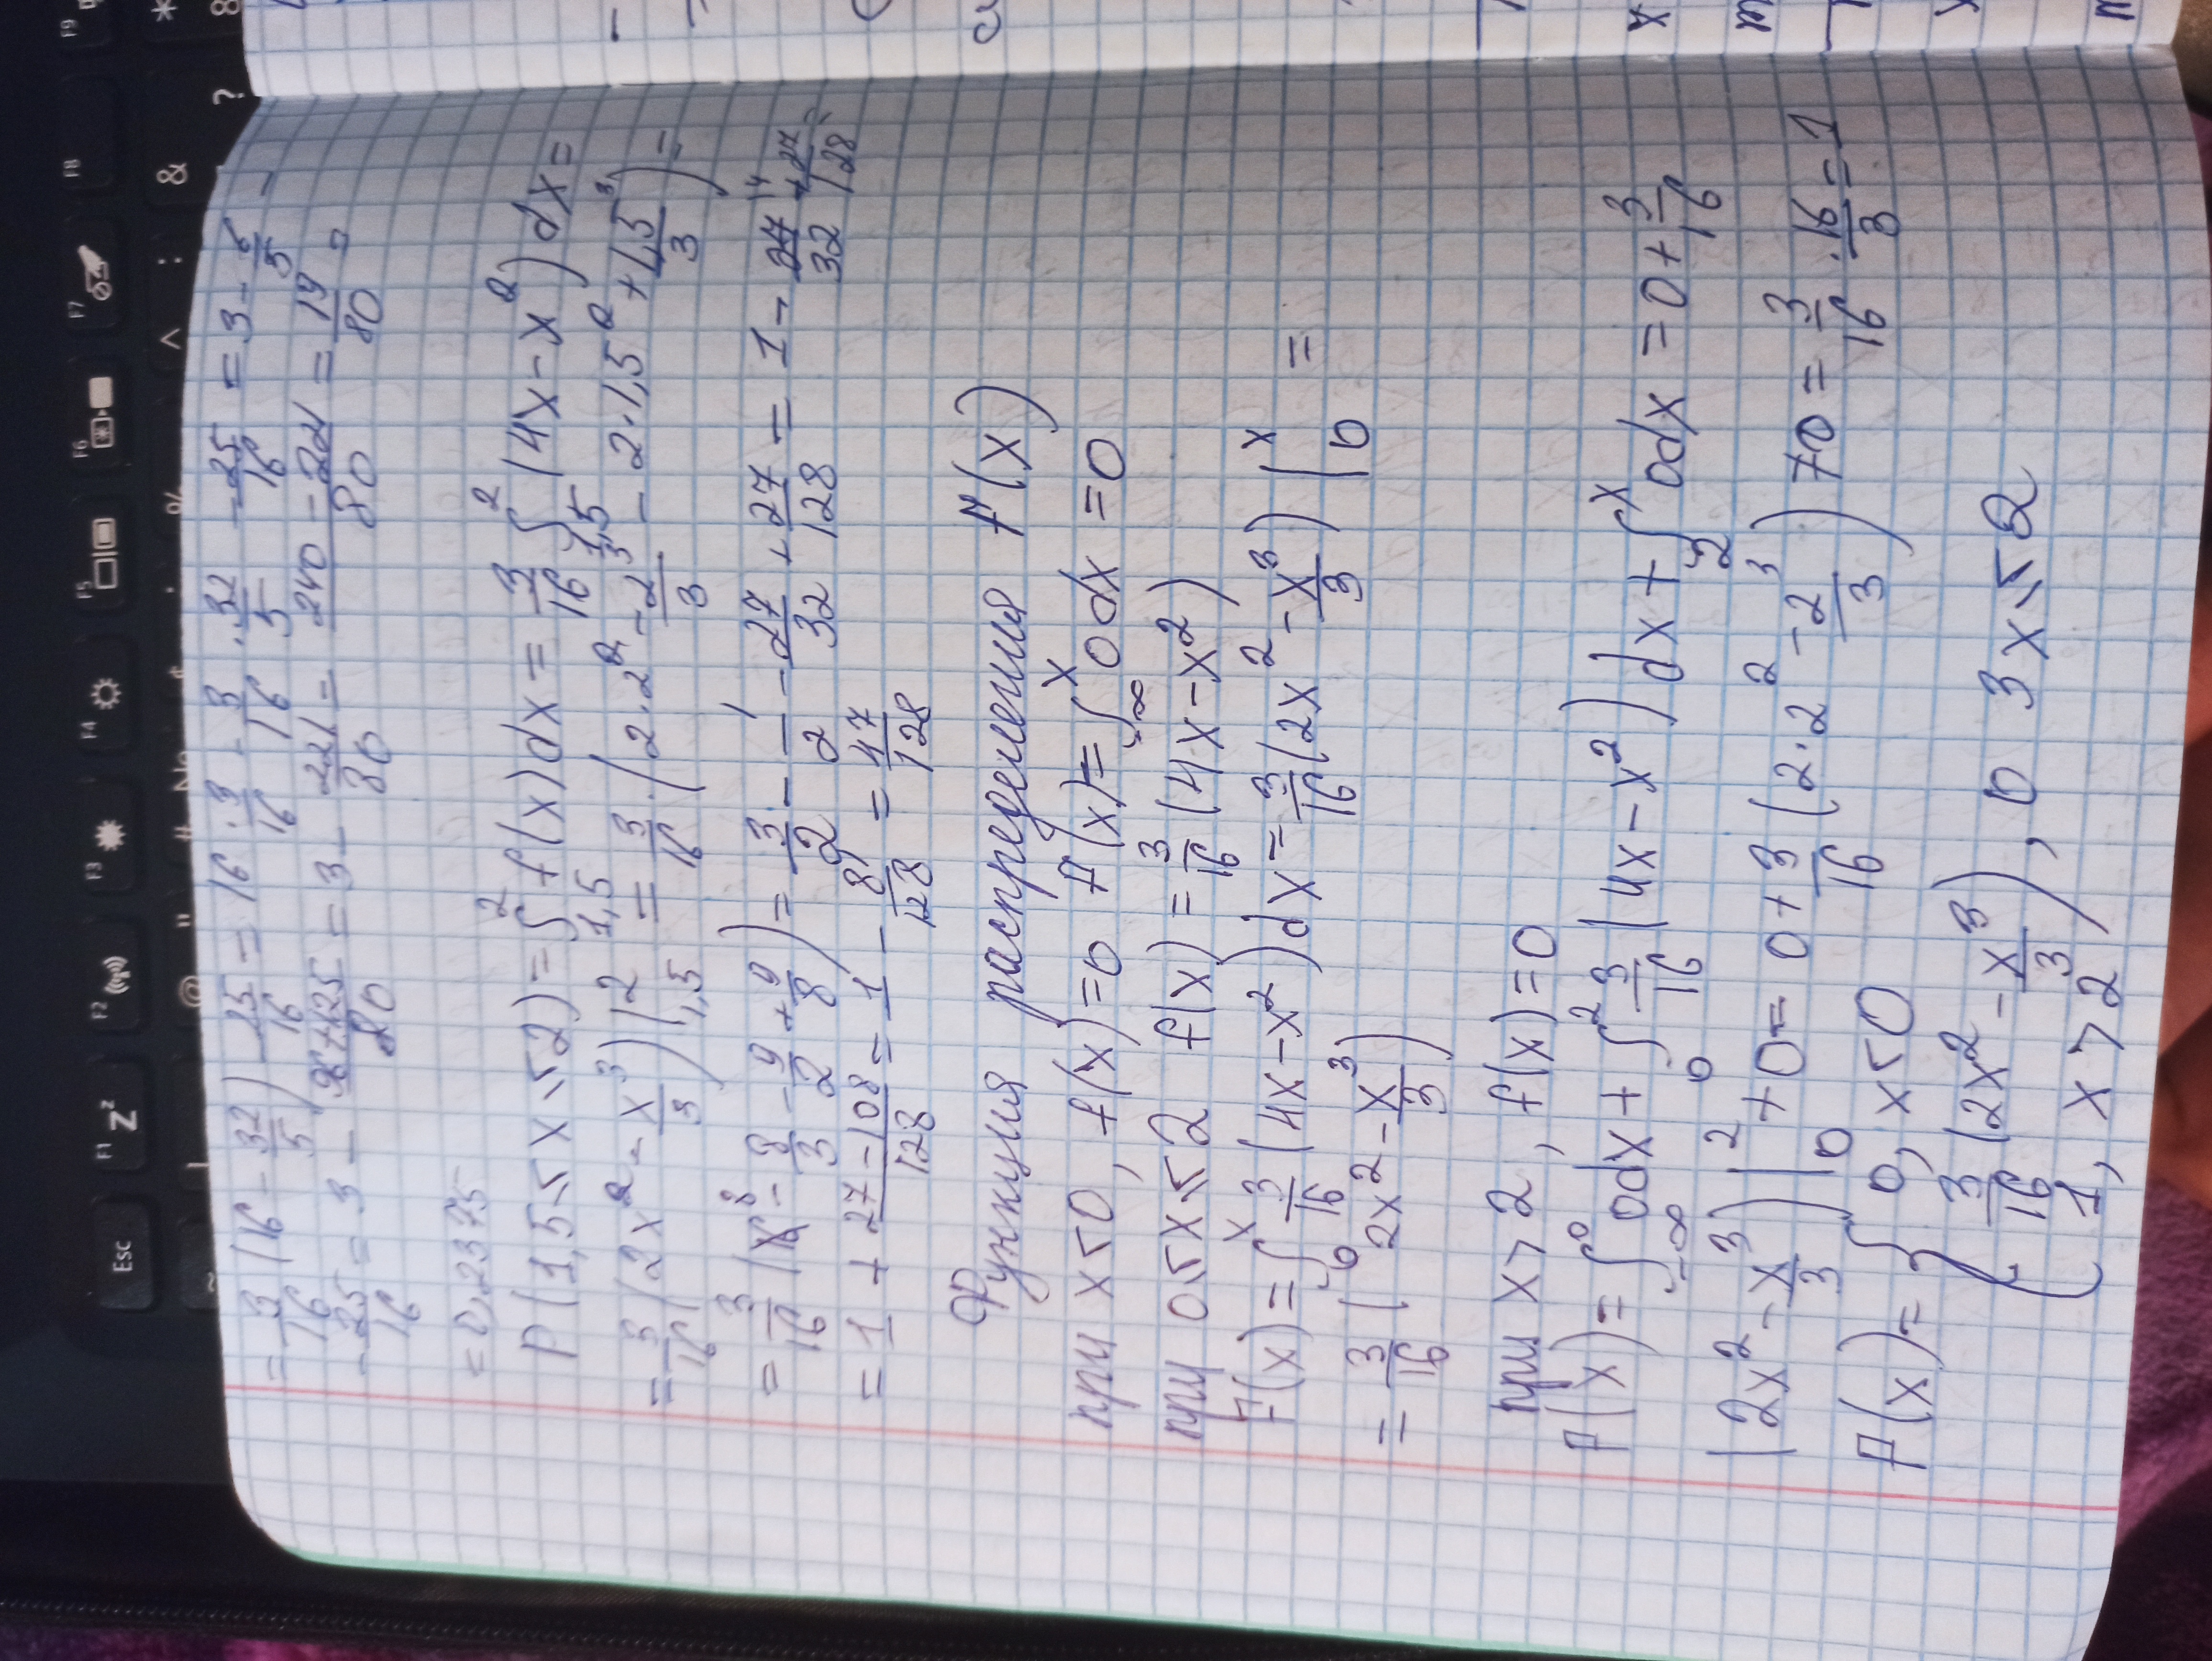 = 3/16 (16 - 32/5) - 25/16 = 16 · 3/16 - 3/16 · 32/5 - 25/16 = 3 - 6/5 -
- 25/16 = 3 - 96+125/80 = 3 - 221/80 = 240-221/80 = 19/80 =
= 0,2375
P(1,5 ≤ x ≤ 2) = ∫_{1,5}^{2} f(x)dx = 3/16 ∫_{1,5}^{2} (4x - x²)dx =
= 3/16 (2x² - x³/3) |_{1,5}^{2} = 3/16 · (2·2² - 2³/3 - 2·1,5² + 1,5³/3) =
= 3/16 (8 - 8/3 - 9/2 + 9/8) = 3/2 - 1/2 - 27/32 + 27/128 = 1 - 27/32 + 27/128 =
= 1 + 27-108/128 = 1 - 81/128 = 47/128
Функция распределения F(x)
при x ≤ 0, f(x) = 0 F(x) = ∫_{-∞}^{x} 0dx = 0
при 0 ≤ x ≤ 2 f(x) = 3/16 (4x - x²)
F(x) = ∫_{0}^{x} 3/16 (4x - x²)dx = 3/16 (2x² - x³/3) |_{0}^{x} =
= 3/16 (2x² - x³/3)
при x > 2, f(x) = 0
F(x) = ∫_{-∞}^{0} 0dx + ∫_{0}^{2} 3/16 (4x - x²)dx + ∫_{2}^{x} 0dx = 0 + 3/16
(2x² - x³/3) |_{0}^{2} + 0 = 0 + 3/16 (2·2² - 2³/3) + 0 = 3/16 · 16/3 = 1
F(x) = { 0, x ≤ 0
3/16 (2x² - x³/3), 0 < x ≤ 2
1, x > 2
Esc F1 F2 F3 F4 F5 F6 F7 F8 F9